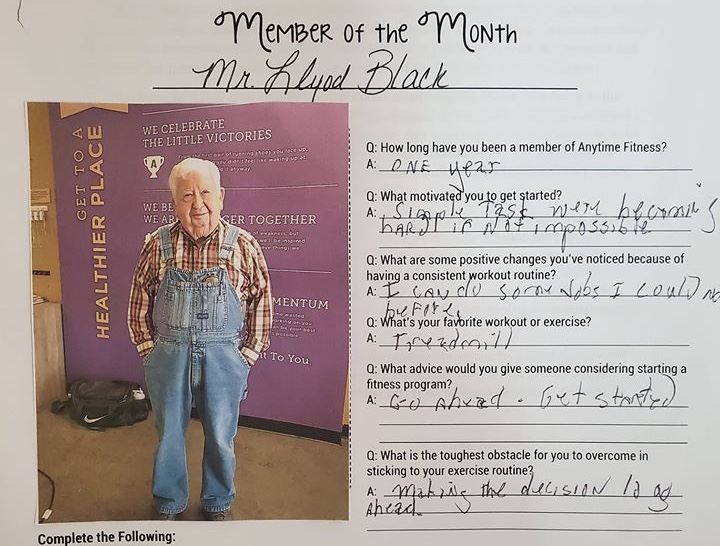 MEMBER OF THE MONTH
Mr. Llyod Black
GET TO A
HEALTHIER PLACE
WE CELEBRATE
THE LITTLE VICTORIES
A
WE BE
WE AR GER TOGETHER
MENTUM
t To You
Q: How long have you been a member of Anytime Fitness?
A: ONE year
Q: What motivated you to get started?
A: Simple Task were becoming
hard if Not impossible
Q: What are some positive changes you've noticed because of
having a consistent workout routine?
A: I can do some Jobs I could no
before.
Q: What's your favorite workout or exercise?
A: Treadmill
Q: What advice would you give someone considering starting a
fitness program?
A: Go Ahead. Get started
Q: What is the toughest obstacle for you to overcome in
sticking to your exercise routine?
A: Making the decision to go
Ahead.
Complete the Following: